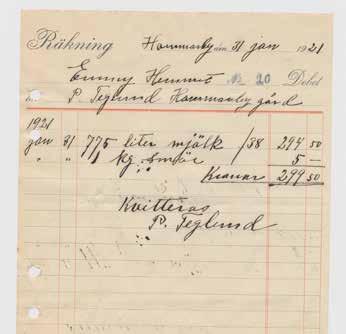 Räkning Hammarby den 31 jan 1921
Emmy Hemmet № 20 Debet
till P. Teglund Hammarby gård
1921
jan 31 775 liter mjölk /38 294 50
" " 1 kg smör 5 —
Kronor 299 50
Kvitteras
P. Teglund